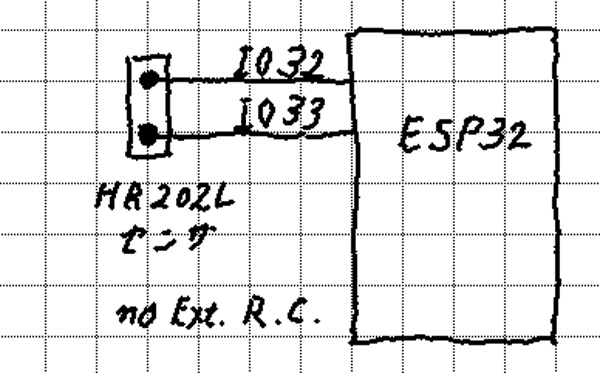 IO32
IO33
ESP32
HR202L
センサ
no Ext. R.C.